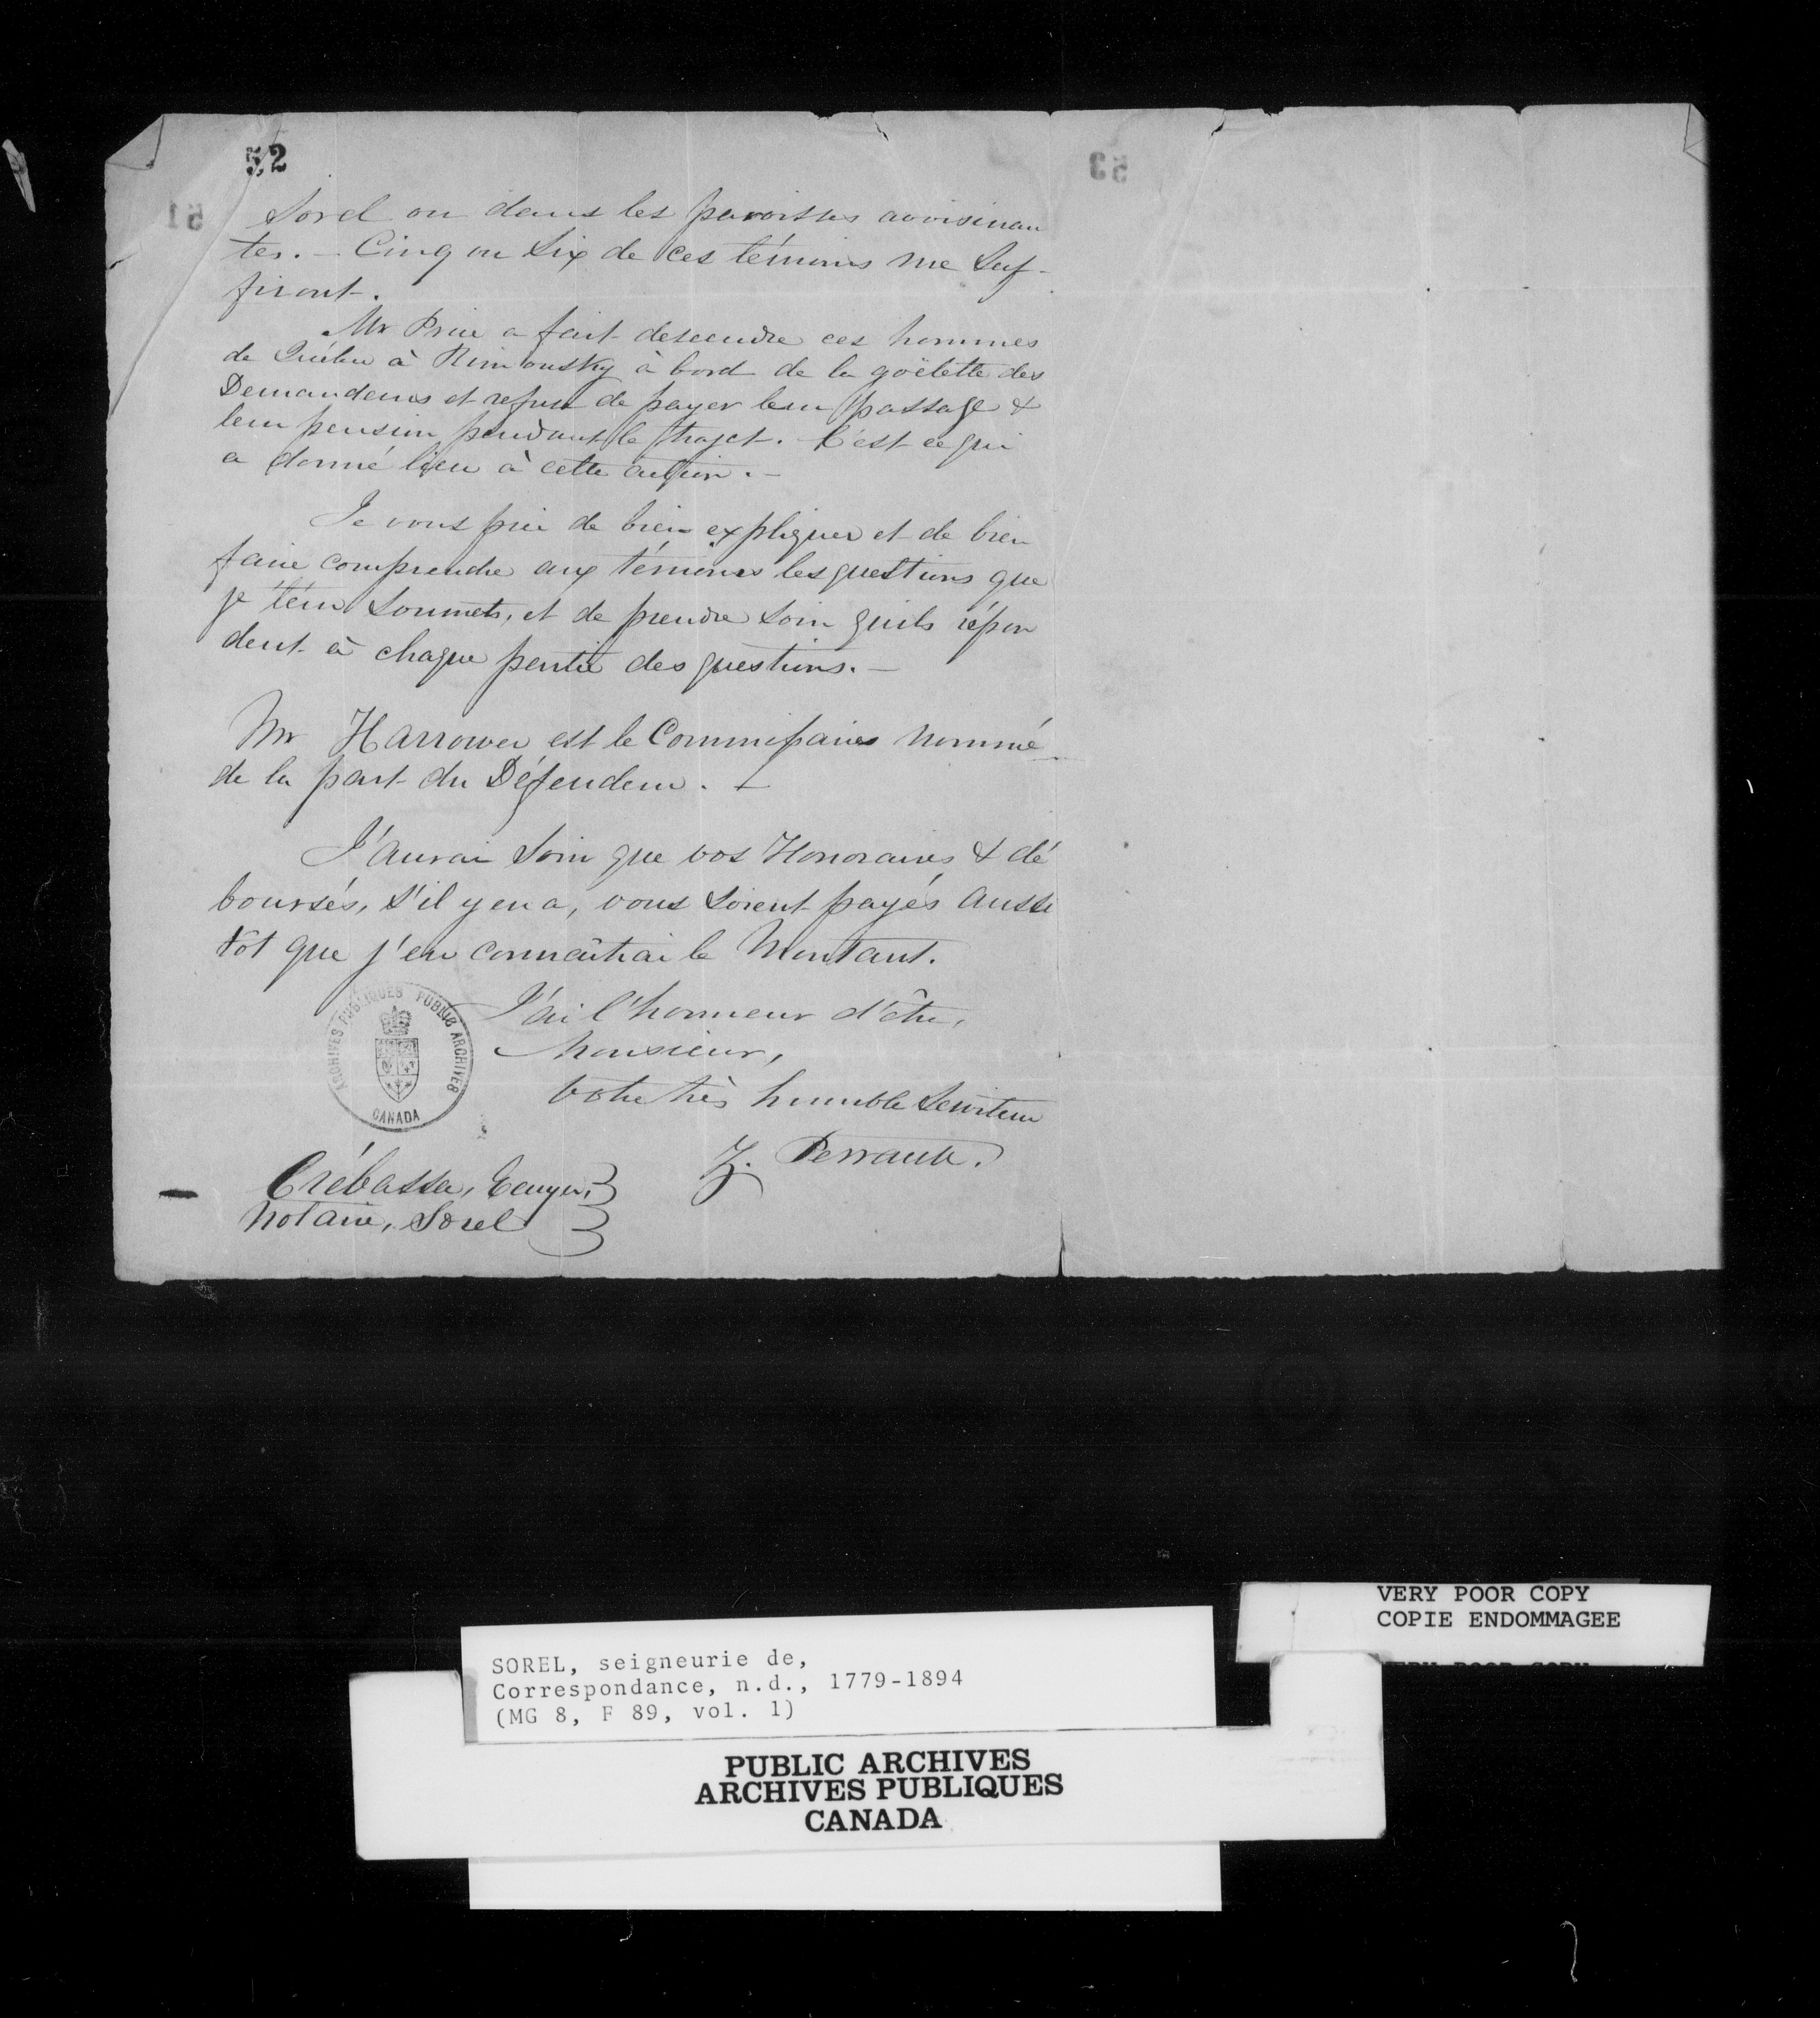 52
Sorel ou dans les paroisses avoisinan
tes. - Cinq ou Six de ces témoins me Suf-
firont.
Mr Price a fait descendre ces hommes
de Québec à Rimousky à bord de la goëlette des
Demandeurs et refuse de payer leur passage &
leur pension pendant le trajet. C'est ce qui
a donné lieu à cette action. -
Je vous prie de bien expliquer et de bien
faire comprendre aux témoins les questions que
je leur Soumets, et de prendre soin qu'ils répon
dent à chaque partie des questions. -
Mr Harrower est le Commissaire nommé
de la part du Défendeur. -
J'aurai Soin que vos Honoraires & dé
boursés, s'il y en a, vous soient payés aussi
tot que j'en connaîtrai le Montant.
J'ai l'honneur d'être,
Monsieur,
Votre très humble Serviteur
Z. Perrault.
Crébassa, Ecuyer,
Notaire, Sorel
ARCHIVES PUBLIQUES PUBLIC ARCHIVES
CANADA
51
53
VERY POOR COPY
COPIE ENDOMMAGEE
SOREL, seigneurie de,
Correspondance, n.d., 1779-1894
(MG 8, F 89, vol. 1)
PUBLIC ARCHIVES
ARCHIVES PUBLIQUES
CANADA